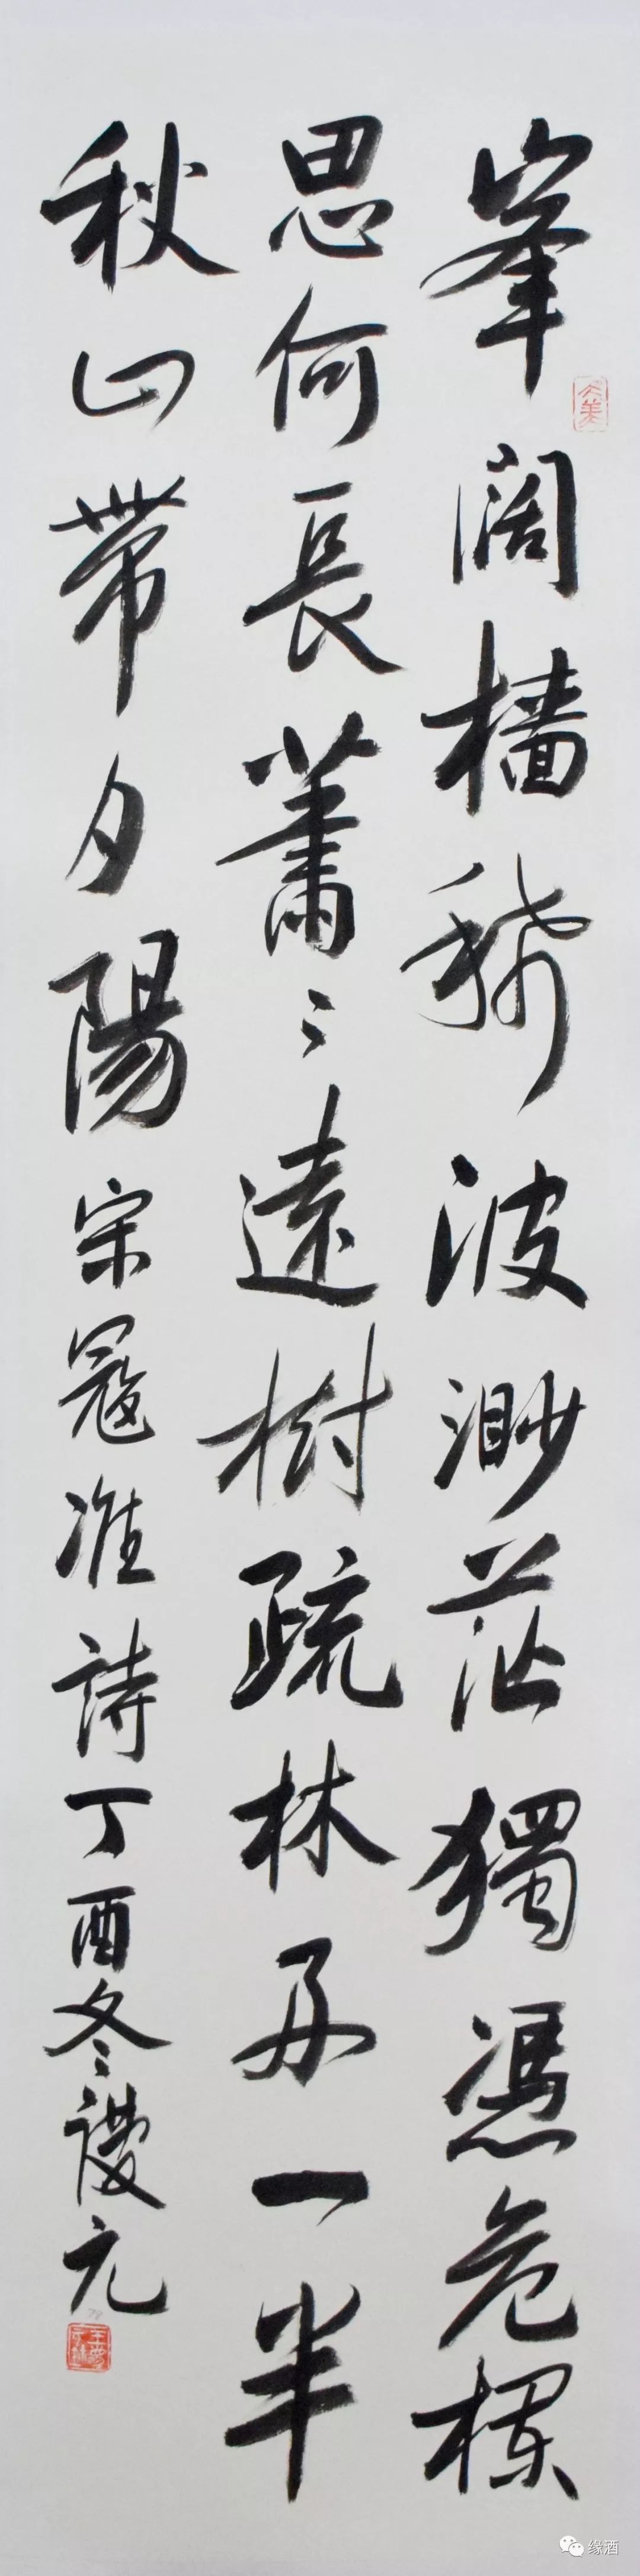 峯闊檣稀波渺茫獨憑危欄
思何長蕭〻遠樹疏林外一半
秋山帶夕陽 宋寇准詩丁酉冬元
大美
缘酒